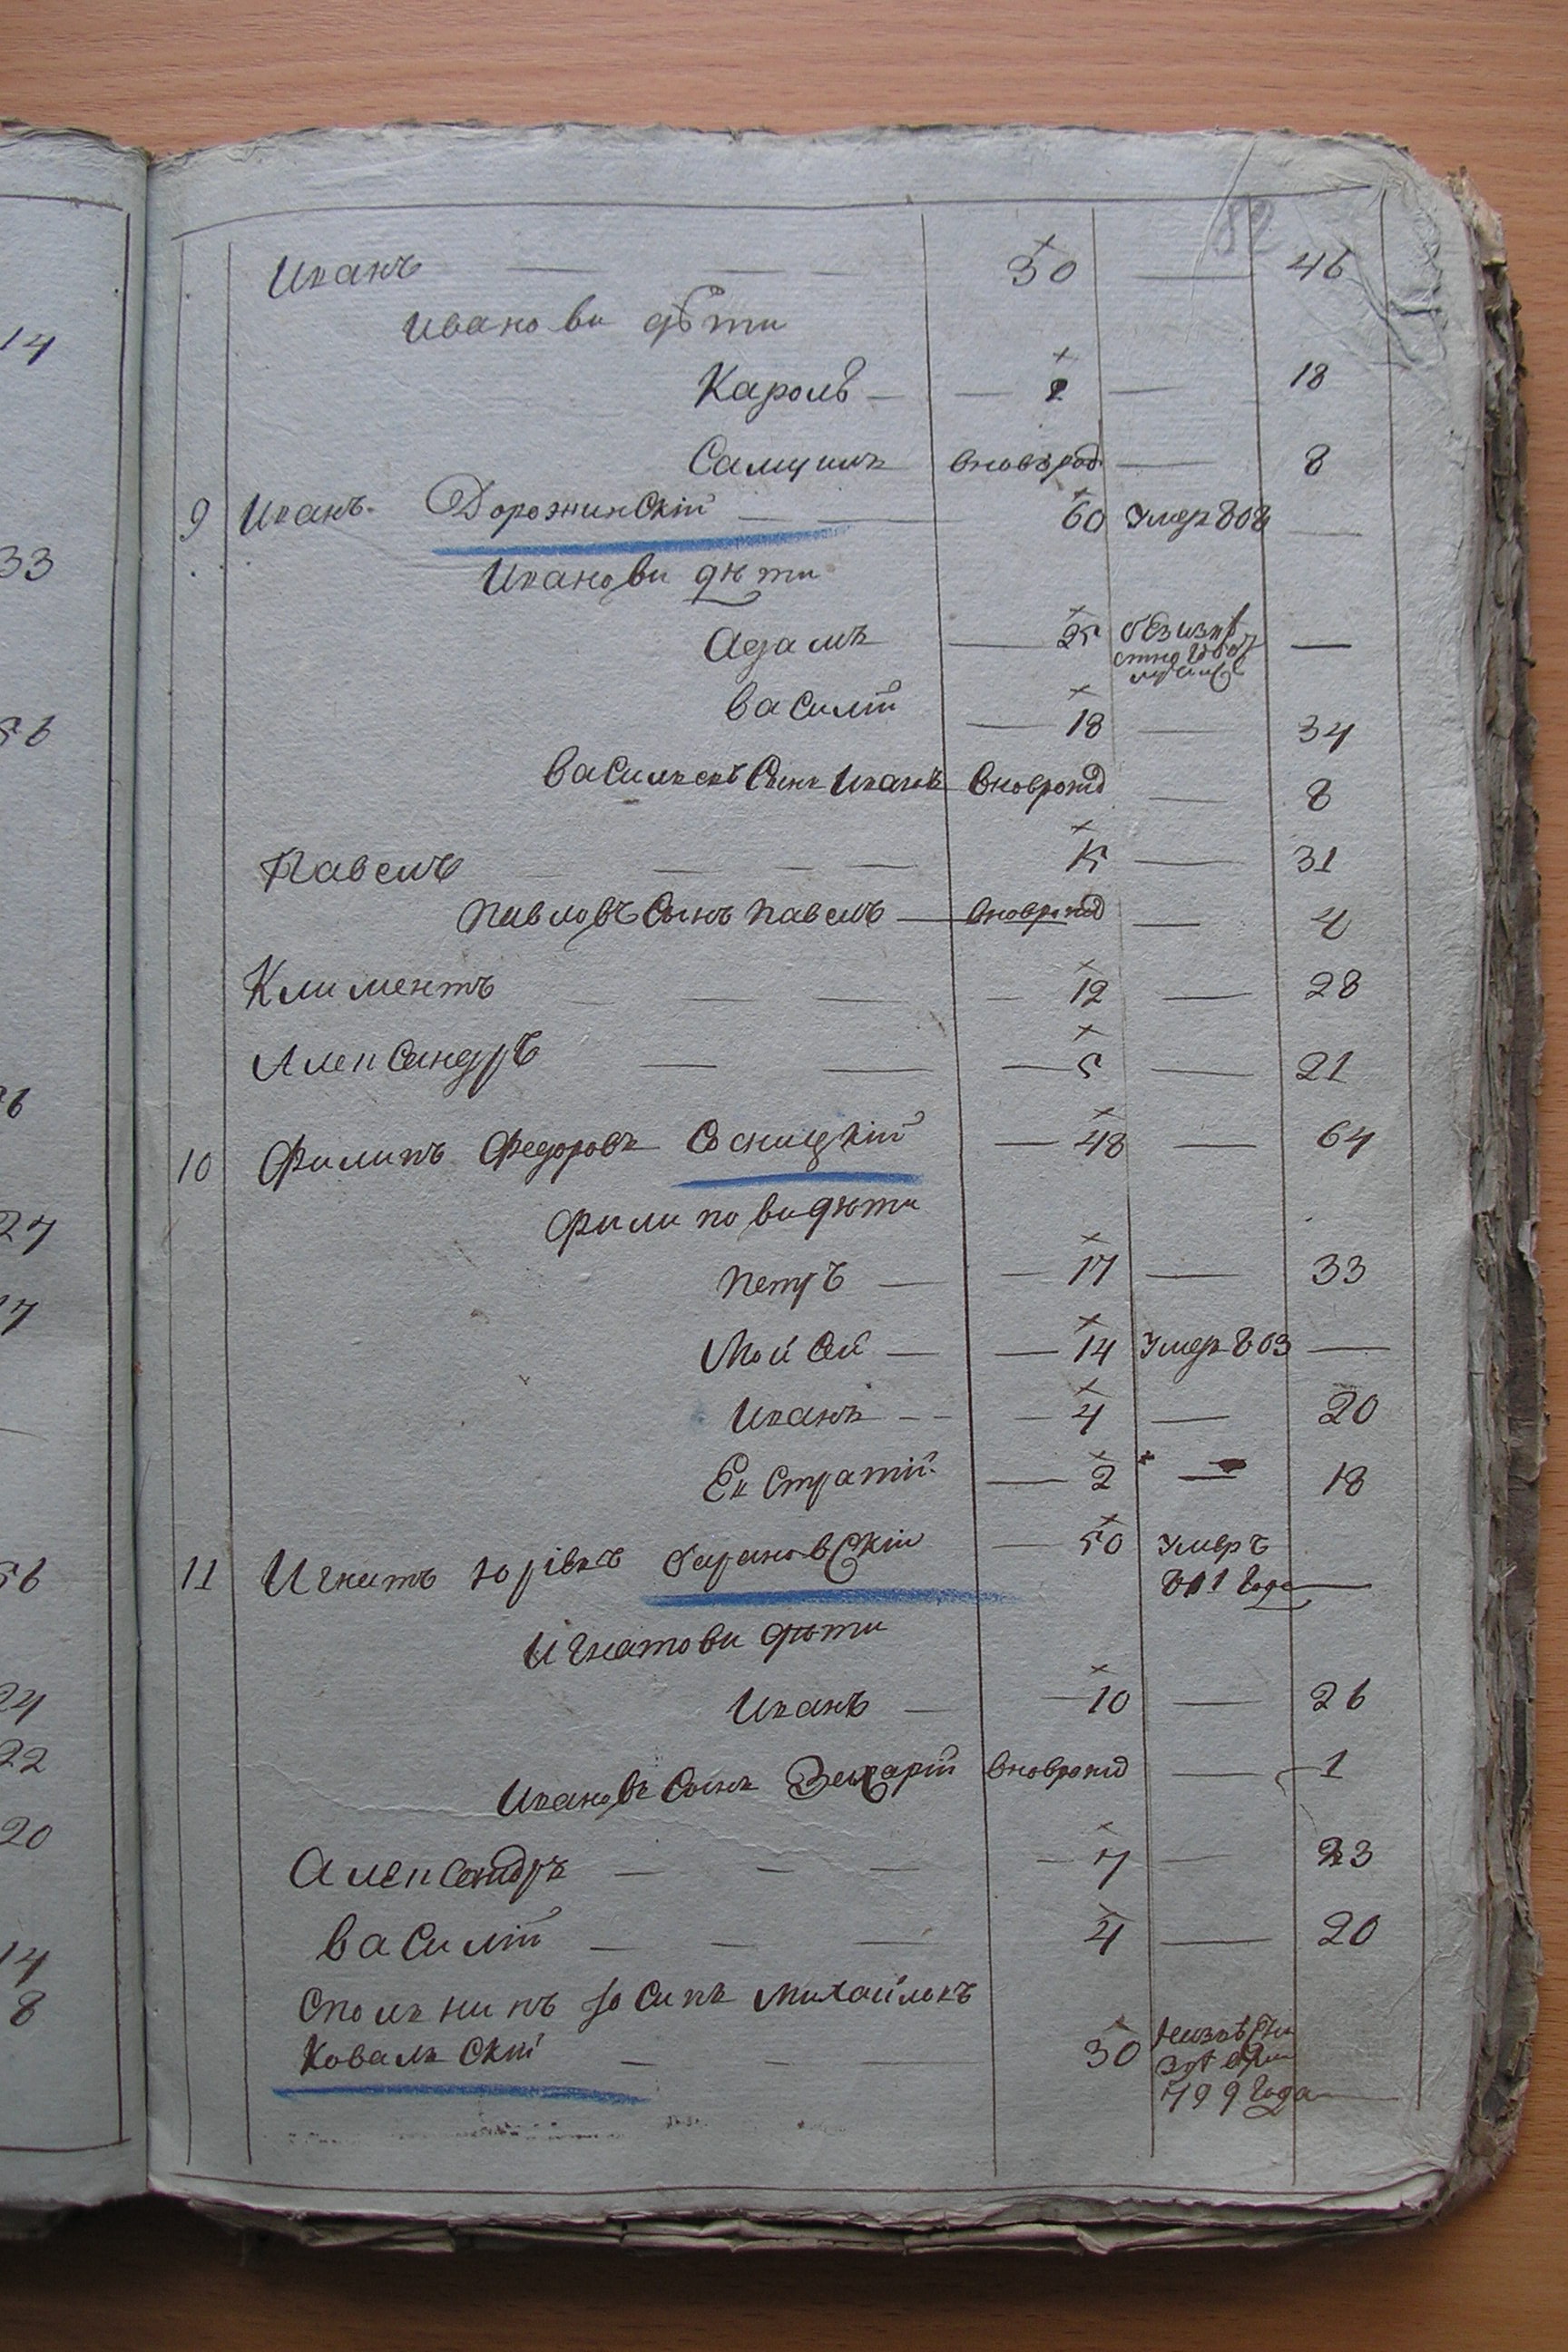 82
Иванъ — — 30 — 46
Иванови дѣти
Кароль — — 2 — 18
Самуилъ вновьрод — 8
9 Иванъ Дорожинскій — — 60 Умер 808 —
Иванови дѣти
Адамъ — 25 безизвѣстно —
Василій — 18 — 34
Васильевъ Сынъ Иванъ вноврожд — 8
Павелъ — — — 15 — 31
Павловъ Сынъ Павелъ — вноврожд — 4
Климентъ — — — — 12 — 28
Александръ — — — 5 — 21
10 Филипъ Федоровъ Сосницкій — 48 — 64
Филипови дѣти
Петръ — — 17 — 33
Мойсей — — 14 Умер 803 —
Иванъ — — — 4 — 20
Евстратій — 2 — 18
11 Игнатъ Юрієвъ Барановскій — 50 Умеръ
811 года —
Игнатови дѣти
Иванъ — — 10 — 26
Ивановъ Сынъ Захарій вноврожд — 1
Александръ — — — — 7 — 23
Василій — — — 4 — 20
Іосипъ Михайловъ
Ковальскій — — — 30
799 года —
14
33
56
27
17
56
24
22
20
14
8